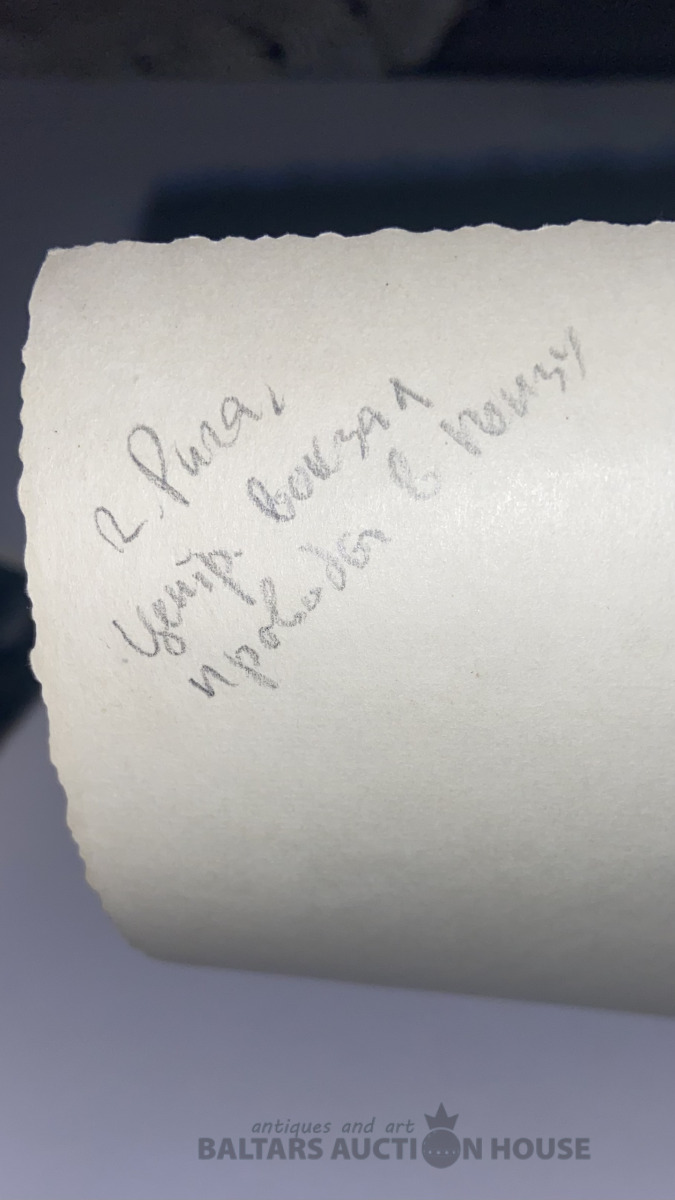 г. Рига,
центр. вокзал
проводы в
antiques and art
BALTARS AUCTION HOUSE